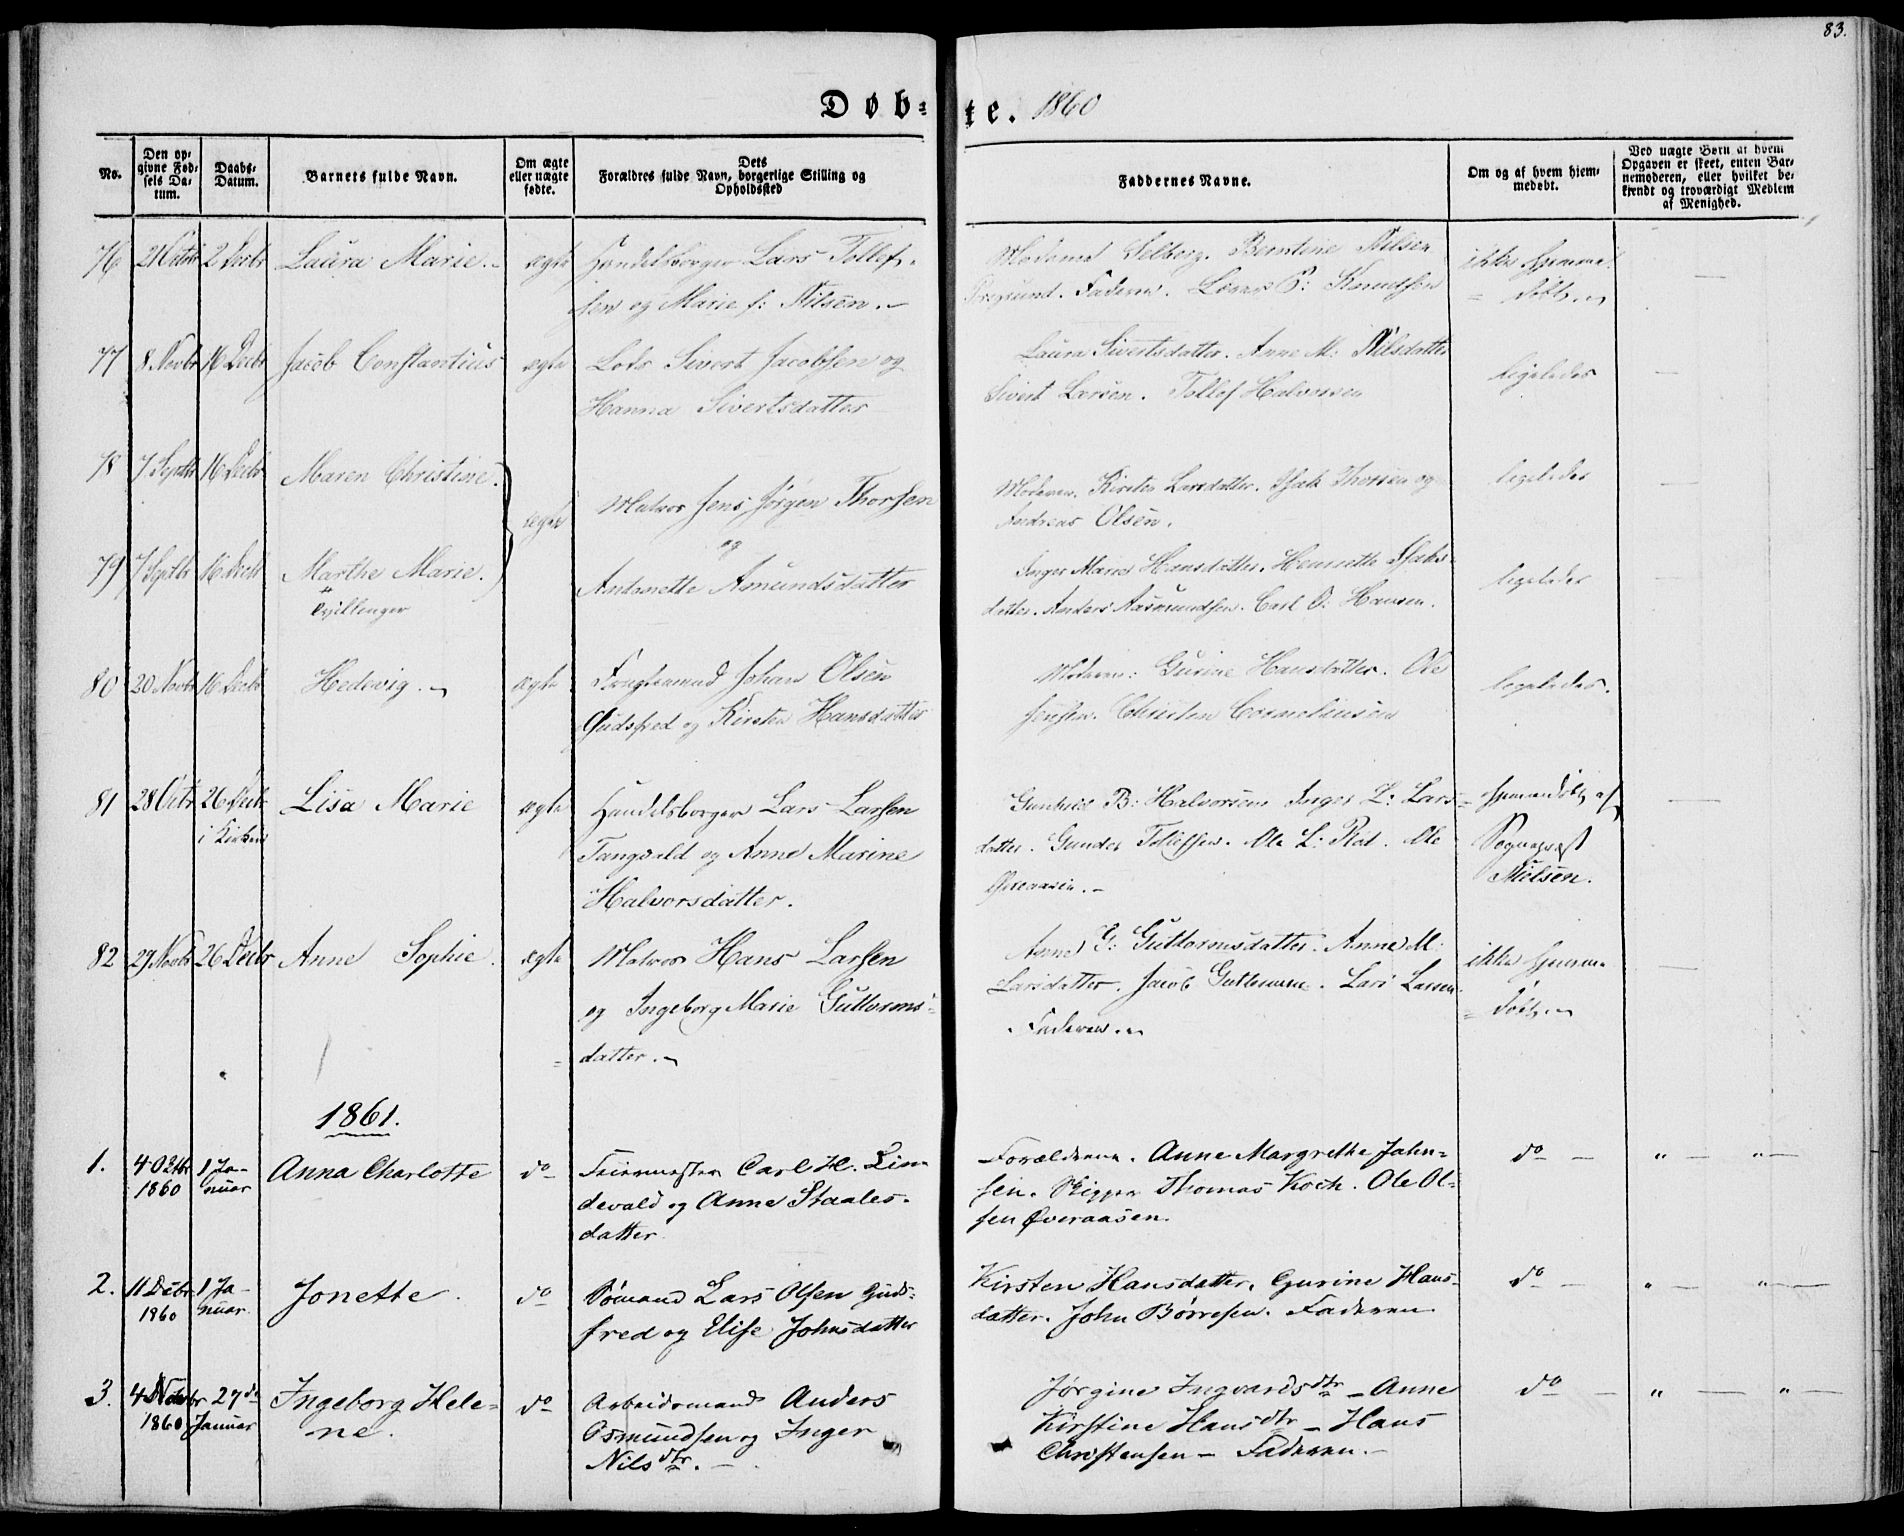 83.
Døb-te. 1860
No.
Den op-
givne Fød-
sels Da-
tum.
Daabs-
Datum.
Barnets fulde Navn.
Om ægte
eller uægte
fødte.
Dets
Forældres fulde Navn, borgerlige Stilling og
Opholdssted
Faddernes Navne.
Om og af hvem hjem-
medøbt.
Ved uægte Børn af hvem
Opgaven er skeet, enten Bar-
nemoderen, eller hvilket be-
kjendt og troværdigt Medlem
af Menighed.
76 21 Octbr 2 Decbr Laura Marie. ægte Handelsborger Lars Tollef-
sen og Marie f: Nilsen.
Madame Selberg. Berntine Nilsen
Faderen. P: Knudsen
ikke hjemme
døbt
77 8 Novbr 16 Decbr Jacob Constantius ægte Lods Sivert Jacobsen og
Hanna Sivertsdatter
Laura Sivertsdatter. Anne M: Nilsdatter
Sivert Larsen. Tollef Halvorsen
ligeledes
78 7 Septbr 16 Decbr Maren Christine.
79 7 Septbr 16 Decbr Marthe Marie.
Tvillinger
ægte
Matros Jens Jørgen Thorsen
og
Antonette Amundsdatter
Moderen. Kirsten Larsdatter. Isak Thorsen og
Andreas Olsen.
ligeledes
Inger Marie Hansdatter. Henriette Isaks-
datter. Anders Aasmundsen. Carl O: Hansen.
ligeledes
80 20 Novbr 16 Decbr Hedevig. ægte Johan Olsen
Gudsfred og Kirsten Hansdatter
Moderen: Gurine Hansdatter. Ole
Jensen. Christen Corneliusen
ligeledes.
81 28 Octbr 26 Decbr
i Kirken
Lisa Marie ægte Handelsborger Lars Larsen
Tangvald og Anne Marine
Halvorsdatter.
Gunhild B: Halvorsen Inger L: Lars-
datter. Gunder Tollefsen. Ole L: Ole
Øveraasen.
hjemmedøbt af
Sognepræst
Nielsen.
82 29 Novbr 26 Decbr Anne Sophie. ægte Matros Hans Larsen
og Ingeborg Marie Guttorms-
datter.
Anne G: Guttormsdatter. Anne M.
Larsdatter. Jacob Guttormsen. Lars Larsen.
Faderen.
ikke hjemme
døbt
1861.
1. 4 Octbr
1860
1 Ja-
nuar
Anna Charlotte do Feiermester Carl H. Lin-
devald og Anne Staales-
datter.
Forældrene. Anne Margrethe Jahn-
sen. Skipper Thomas Koch. Ole Ol-
sen Øveraasen.
do
2. 11 Decbr
1860
1 Ja-
nuar.
Jonette. do Sømand Lars Olsen Guds-
fred og Elise Johnsdatter
Kirsten Hansdatter. Gurine Hans-
datter. John Børresen. Faderen.
do
3. 4 Novbr
1860
27de
Januar
Ingeborg Hele-
ne.
do Arbeidsmand Anders
Osmundsen og Inger
Nilsdtr.
Jørgine Ingvardsdtr - Anne
Kirstine Hansdtr - Hans
Christensen - Faderen.
do